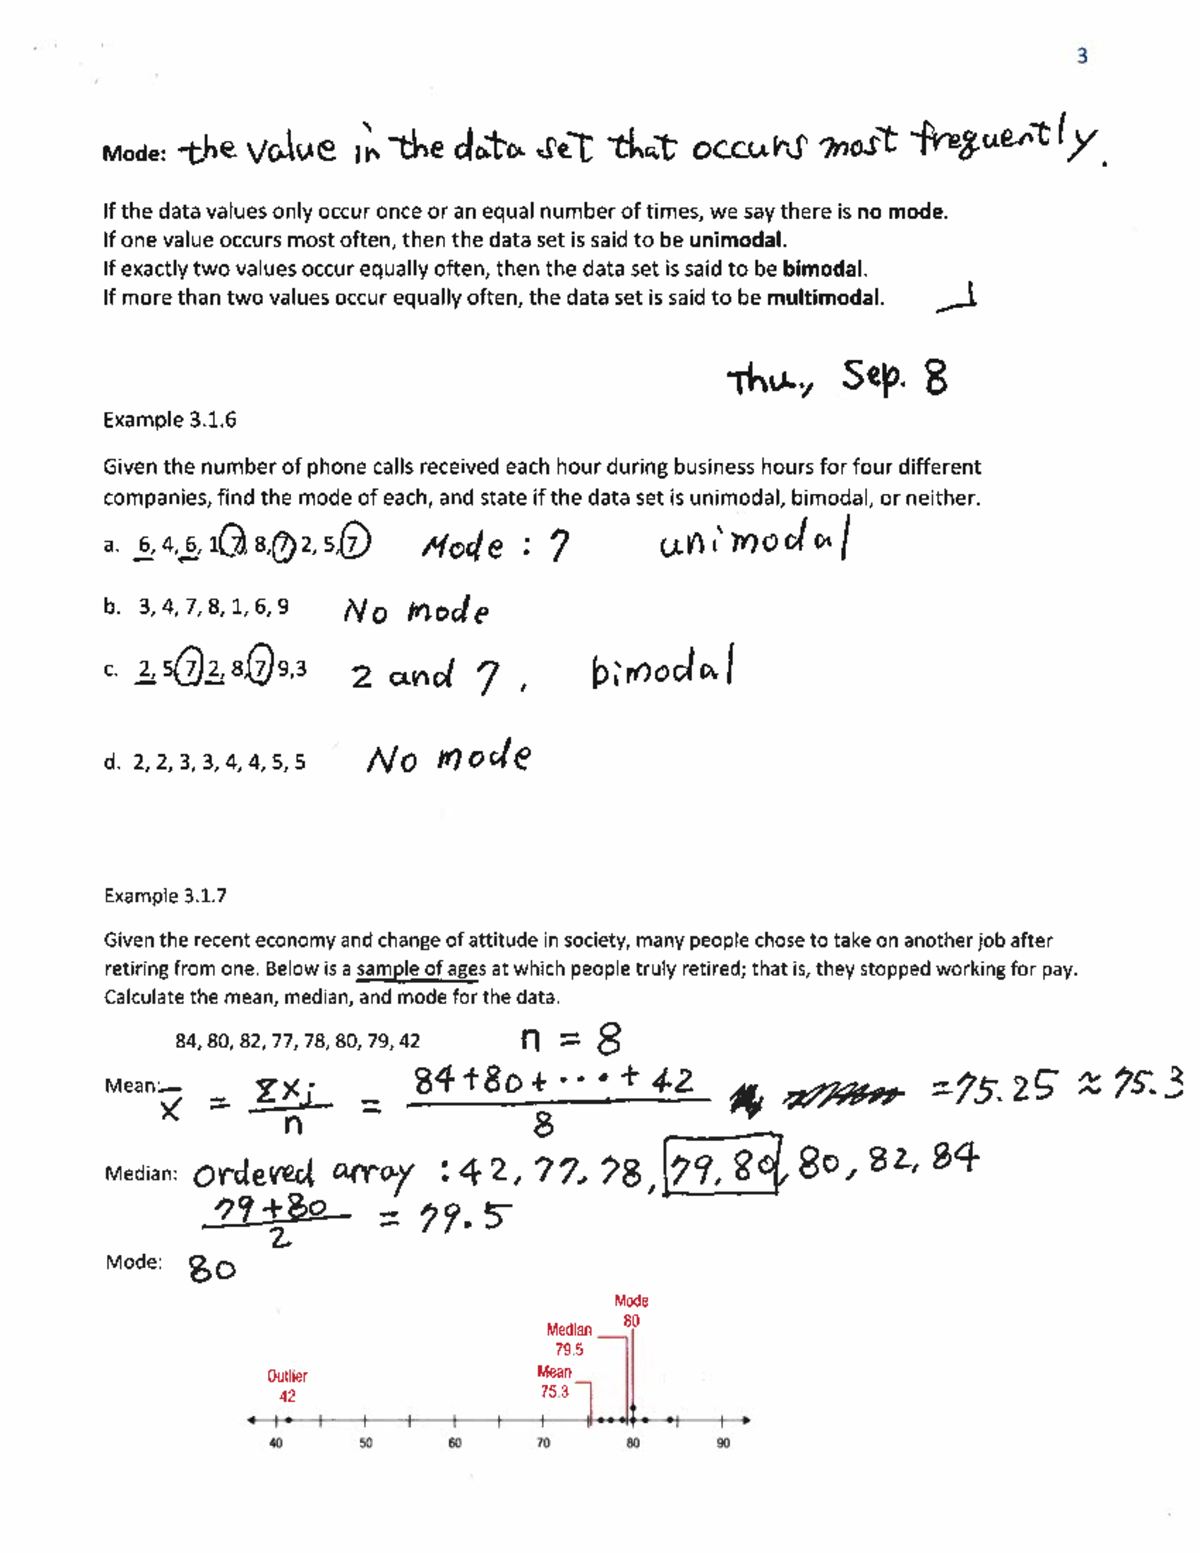 3
Mode: the value in the data set that occurs most frequently.
If the data values only occur once or an equal number of times, we say there is no mode.
If one value occurs most often, then the data set is said to be unimodal.
If exactly two values occur equally often, then the data set is said to be bimodal.
If more than two values occur equally often, the data set is said to be multimodal.
Thu., Sep. 8
Example 3.1.6
Given the number of phone calls received each hour during business hours for four different
companies, find the mode of each, and state if the data set is unimodal, bimodal, or neither.
a. 6, 4, 6, 1, 7, 8, 7, 2, 5, 7 Mode : 7 unimodal
b. 3, 4, 7, 8, 1, 6, 9 No mode
c. 2, 5, 7, 2, 8, 7, 9,3 2 and 7, bimodal
d. 2, 2, 3, 3, 4, 4, 5, 5 No mode
Example 3.1.7
Given the recent economy and change of attitude in society, many people chose to take on another job after
retiring from one. Below is a sample of ages at which people truly retired; that is, they stopped working for pay.
Calculate the mean, median, and mode for the data.
84, 80, 82, 77, 78, 80, 79, 42 n = 8
Mean: x̄ = Σxi / n = 84+80+...+42 / 8 =75.25 ≈ 75.3
Median: ordered array : 42, 77, 78, 79, 80, 80, 82, 84
79+80 / 2 = 79.5
Mode: 80
Mode
80
Median
79.5
Mean
75.3
Outlier
42
40 50 60 70 80 90